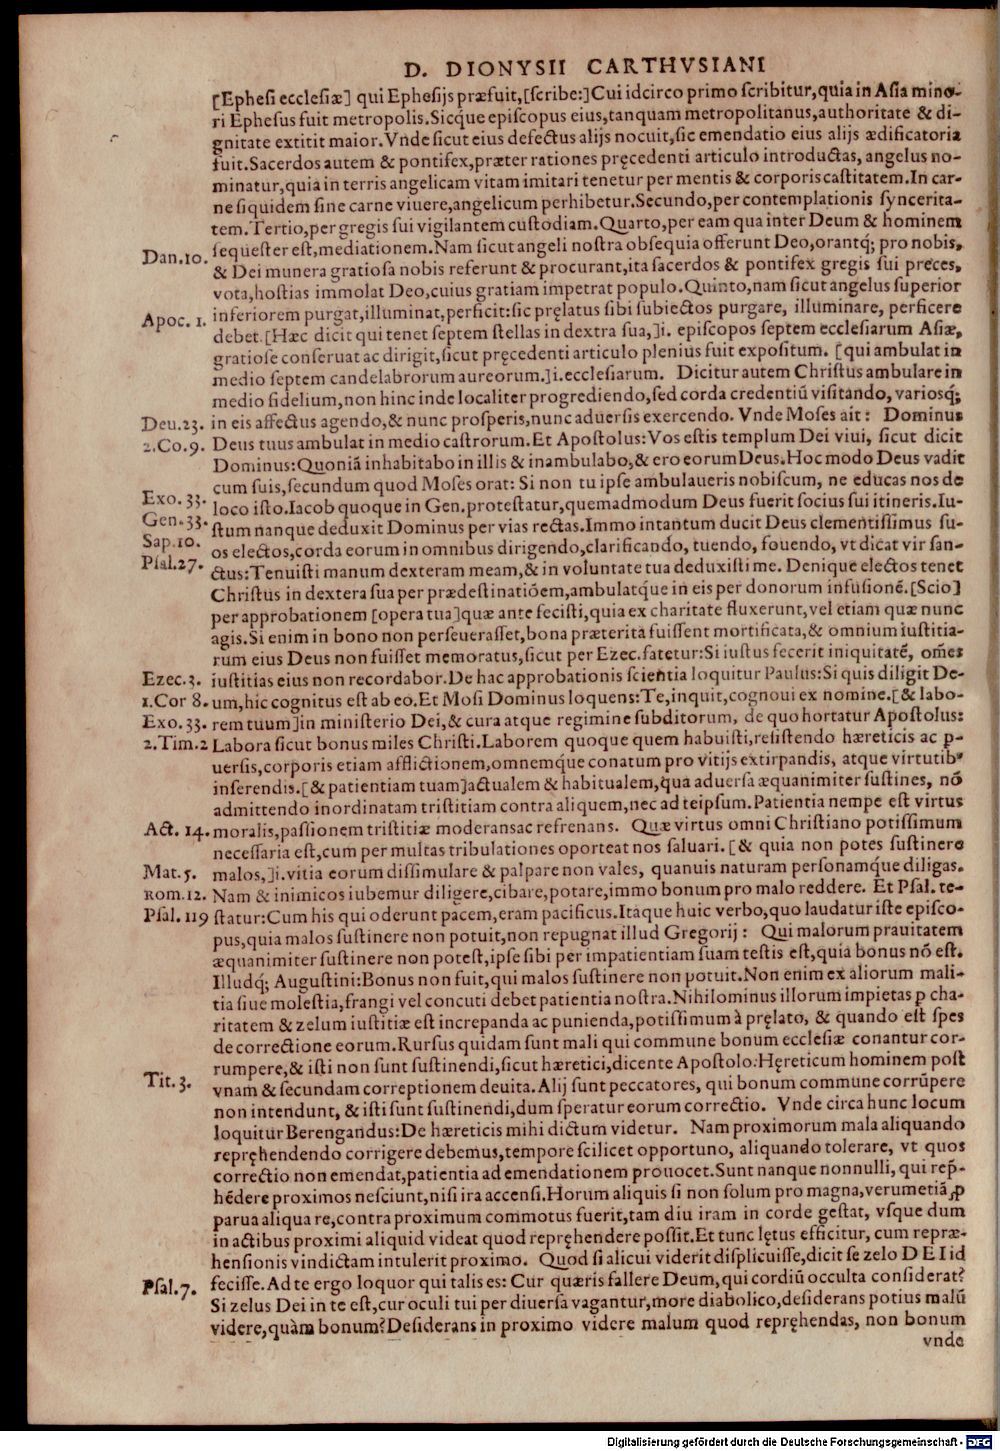 D. DIONYSII CARTHVSIANI
[Ephesi ecclesiæ] qui Ephesijs præfuit,[scribe:]Cui idcirco primo scribitur,quia in Asia mino-
ri Ephesus fuit metropolis.Sicq́ue episcopus eius,tanquam metropolitanus,authoritate & di-
gnitate extitit maior.Vnde sicut eius defectus alijs nocuit,sic emendatio eius alijs ædificatoria
fuit.Sacerdos autem & pontifex,præter rationes pręcedenti articulo introductas, angelus no-
minatur,quia in terris angelicam vitam imitari tenetur per mentis & corporis castitatem.In car-
ne siquidem sine carne viuere,angelicum perhibetur.Secundo,per contemplationis syncerita-
tem.Tertio,per gregis sui vigilantem custodiam.Quarto,per eam qua inter Deum & hominem
sequester est,mediationem.Nam sicut angeli nostra obsequia offerunt Deo,orantq́; pro nobis,
Dan.10.
& Dei munera gratiosa nobis referunt & procurant,ita sacerdos & pontifex gregis sui preces,
vota,hostias immolat Deo,cuius gratiam impetrat populo.Quinto,nam sicut angelus superior
inferiorem purgat,illuminat,perficit:sic pręlatus sibi subiectos purgare, illuminare, perficere
Apoc. 1.
debet.[Hæc dicit qui tenet septem stellas in dextra sua,]i. episcopos septem ecclesiarum Asiæ,
gratiose conseruat ac dirigit,sicut pręcedenti articulo plenius fuit expositum. [qui ambulat in
medio septem candelabrorum aureorum.]i.ecclesiarum. Dicitur autem Christus ambulare in
medio fidelium,non hinc inde localiter progrediendo,sed corda credentiū visitando, variosq́;
Deu.23. in eis affectus agendo,& nunc prosperis,nunc aduersis exercendo. Vnde Moses ait: Dominus
2.Co.9. Deus tuus ambulat in medio castrorum.Et Apostolus:Vos estis templum Dei viui, sicut dicit
Dominus:Quoniā inhabitabo in illis & inambulabo,& ero eorum Deus.Hoc modo Deus vadit
cum suis,secundum quod Moses orat: Si non tu ipse ambulaueris nobiscum, ne educas nos de
Exo. 33.
loco isto.Iacob quoque in Gen.protestatur,quemadmodum Deus fuerit socius sui itineris.Iu-
Gen.33. stum nanque deduxit Dominus per vias rectas.Immo intantum ducit Deus clementissimus su-
Sap.10.
os electos,corda eorum in omnibus dirigendo,clarificando, tuendo, fouendo, vt dicat vir san-
Psal.27. ctus:Tenuisti manum dexteram meam,& in voluntate tua deduxisti me. Denique electos tenet
Christus in dextera sua per prædestinatiōem,ambulatq́ue in eis per donorum infusionē.[Scio]
per approbationem [opera tua]quæ ante fecisti,quia ex charitate fluxerunt,vel etiam quæ nunc
agis.Si enim in bono non perseuerasset,bona præterita fuissent mortificata,& omnium iustitia-
rum eius Deus non fuisset memoratus,sicut per Ezec.fatetur:Si iustus fecerit iniquitatē, om̄es
Ezec.3. iustitias eius non recordabor.De hac approbationis scientia loquitur Paulus:Si quis diligit De-
1.Cor 8. um,hic cognitus est ab eo.Et Mosi Dominus loquens:Te,inquit,cognoui ex nomine.[& labo-
Exo.33. rem tuum]in ministerio Dei,& cura atque regimine subditorum, de quo hortatur Apostolus:
2.Tim.2 Labora sicut bonus miles Christi.Laborem quoque quem habuisti,resistendo hæreticis ac ꝑ-
uersis,corporis etiam afflictionem,omnemq́ue conatum pro vitijs extirpandis, atque virtutibꝰ
inserendis.[& patientiam tuam]actualem & habitualem,qua aduersa æquanimiter sustines, nō
admittendo inordinatam tristitiam contra aliquem,nec ad teipsum.Patientia nempe est virtus
Act. 14. moralis,passionem tristitiæ moderans ac refrenans. Quæ virtus omni Christiano potissimum
necessaria est,cum per multas tribulationes oporteat nos saluari. [& quia non potes sustinere
Mat.5. malos,]i.vitia eorum dissimulare & palpare non vales, quanuis naturam personamq́ue diligas.
Rom.12. Nam & inimicos iubemur diligere,cibare,potare,immo bonum pro malo reddere. Et Psal. te-
Psal. 119 statur:Cum his qui oderunt pacem,eram pacificus.Itaque huic verbo,quo laudatur iste episco-
pus,quia malos sustinere non potuit,non repugnat illud Gregorij: Qui malorum prauitatem
æquanimiter sustinere non potest,ipse sibi per impatientiam suam testis est,quia bonus nō est.
Illudq́; Augustini:Bonus non fuit,qui malos sustinere non potuit.Non enim ex aliorum mali-
tia siue molestia,frangi vel concuti debet patientia nostra.Nihilominus illorum impietas ꝑ cha-
ritatem & zelum iustitiæ est increpanda ac punienda,potissimum à pręlato, & quando est spes
de correctione eorum.Rursus quidam sunt mali qui commune bonum ecclesiæ conantur cor-
rumpere,& isti non sunt sustinendi,sicut hæretici,dicente Apostolo:Hęreticum hominem post
Tit.3. vnam & secundam correptionem deuita.Alij sunt peccatores, qui bonum commune corrūpere
non intendunt, & isti sunt sustinendi,dum speratur eorum correctio. Vnde circa hunc locum
loquitur Berengandus:De hæreticis mihi dictum videtur. Nam proximorum mala aliquando
repręhendendo corrigere debemus,tempore scilicet opportuno, aliquando tolerare, vt quos
correctio non emendat,patientia ad emendationem prouocet.Sunt nanque nonnulli, qui rep̄-
hēdere proximos nesciunt,nisi ira accensi.Horum aliquis si non solum pro magna,verumetiā ꝓ
parua aliqua re,contra proximum commotus fuerit,tam diu iram in corde gestat, vsque dum
in actibus proximi aliquid videat quod repręhendere possit.Et tunc lętus efficitur, cum repræ-
hensionis vindictam intulerit proximo. Quod si alicui viderit displicuisse,dicit se zelo D E I id
Psal.7. fecisse. Ad te ergo loquor qui talis es: Cur quæris fallere Deum,qui cordiū occulta considerat?
Si zelus Dei in te est,cur oculi tui per diuersa vagantur,more diabolico,desiderans potius malū
videre,quàm bonum?Desiderans in proximo videre malum quod repręhendas, non bonum
vnde
Digitalisierung gefördert durch die Deutsche Forschungsgemeinschaft - DFG